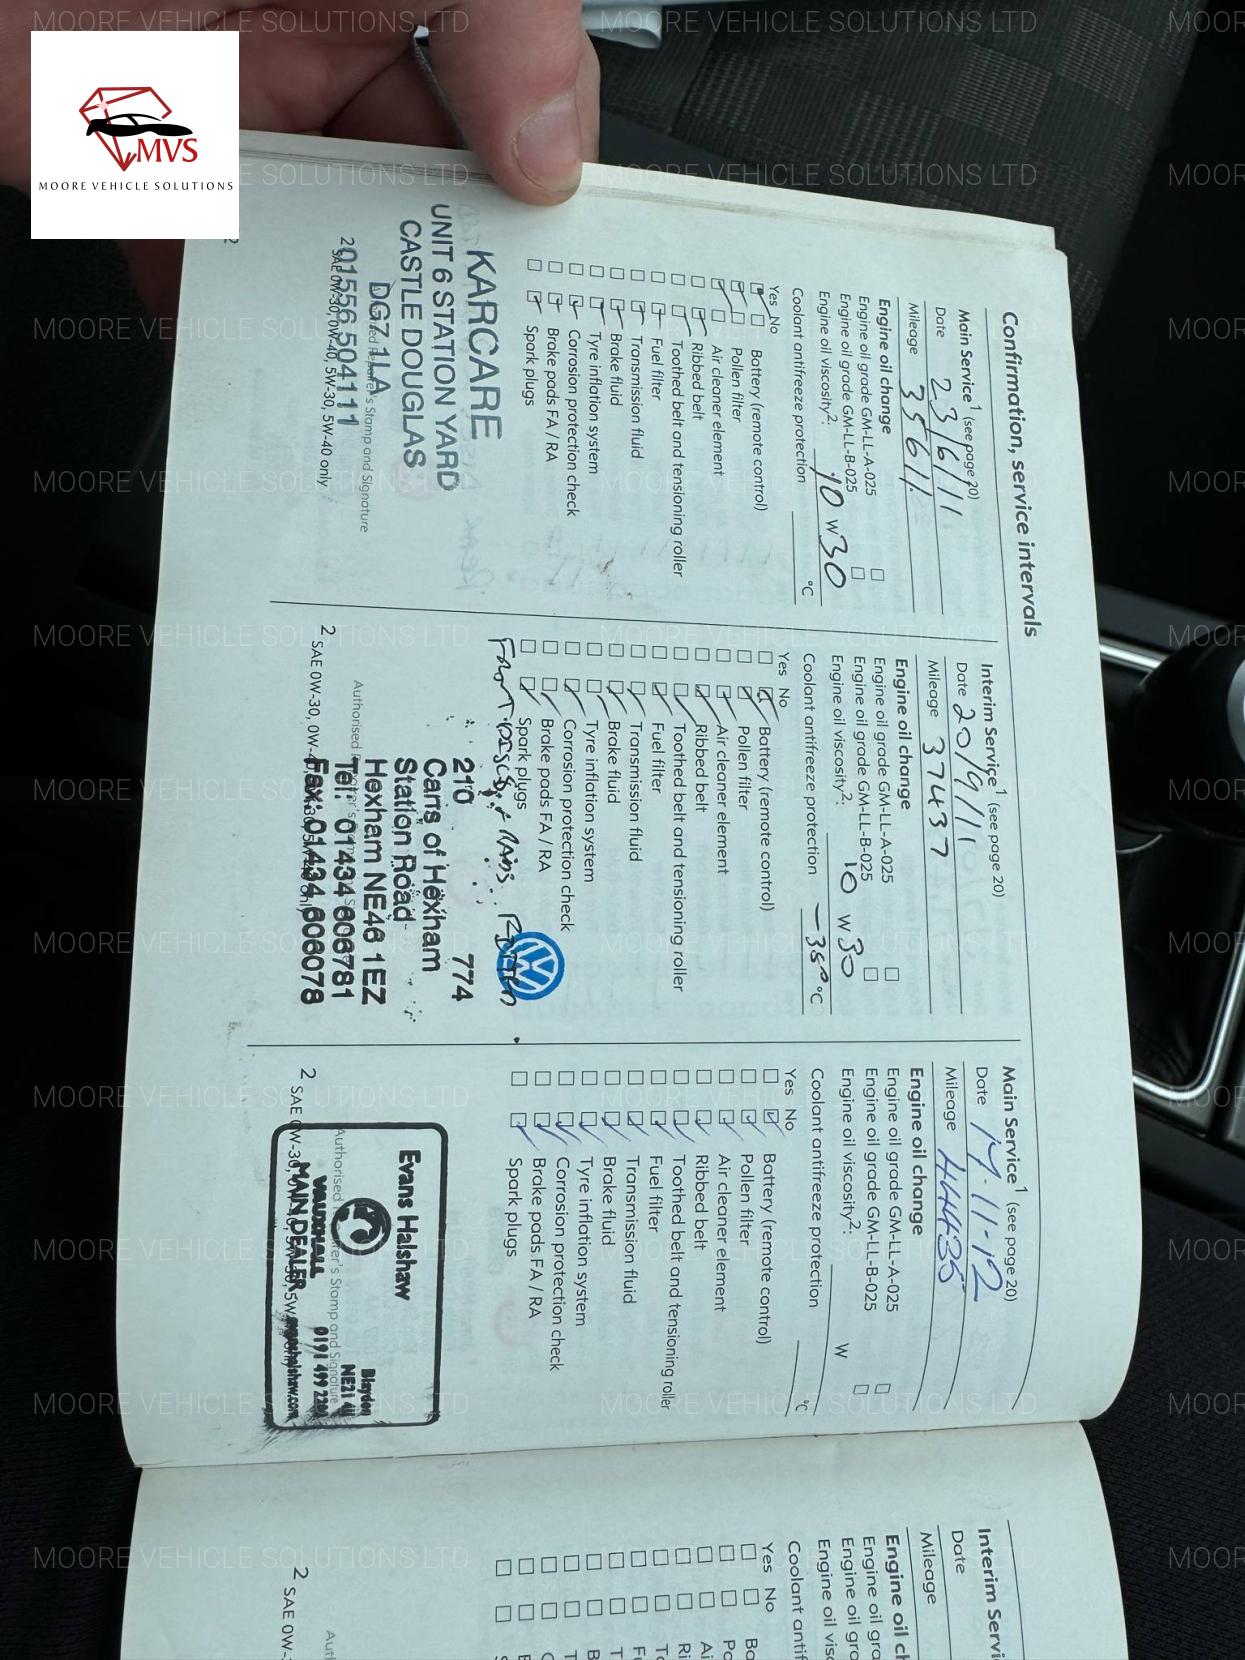 MVS
MOORE VEHICLE SOLUTIONS
MOORE VEHICLE SOLUTIONS LTD
Confirmation, service intervals
Main Service1 (see page 20)
Date 23/6/11
Mileage 35611
Engine oil change
Engine oil grade GM-LL-A-025
Engine oil grade GM-LL-B-025
Engine oil viscosity2: 10 W 30
Coolant antifreeze protection °C
Yes No
Battery (remote control)
Pollen filter
Air cleaner element
Ribbed belt
Toothed belt and tensioning roller
Fuel filter
Transmission fluid
Brake fluid
Tyre inflation system
Corrosion protection check
Brake pads FA / RA
Spark plugs
KARCARE
UNIT 6 STATION YARD
CASTLE DOUGLAS
DG7 1LA
01556 504111
Stamp and Signature
2 SAE 0W-30, 0W-40, 5W-30, 5W-40 only
Interim Service1 (see page 20)
Date 20/9/11
Mileage 37437
Engine oil change
Engine oil grade GM-LL-A-025
Engine oil grade GM-LL-B-025
Engine oil viscosity2: 10 W 30
Coolant antifreeze protection -35° °C
Yes No
Battery (remote control)
Pollen filter
Air cleaner element
Ribbed belt
Toothed belt and tensioning roller
Fuel filter
Transmission fluid
Brake fluid
Tyre inflation system
Corrosion protection check
Brake pads FA / RA
Spark plugs
210 774
Carrs of Hexham
Station Road
Hexham NE46 1EZ
Tel: 01434 606781
Fax: 01434 606078
Authorised
2 SAE 0W-30,
Main Service1 (see page 20)
Date 14-11-12
Mileage 44435
Engine oil change
Engine oil grade GM-LL-A-025
Engine oil grade GM-LL-B-025
Engine oil viscosity2: W
Coolant antifreeze protection °C
Yes No
Battery (remote control)
Pollen filter
Air cleaner element
Ribbed belt
Toothed belt and tensioning roller
Fuel filter
Transmission fluid
Brake fluid
Tyre inflation system
Corrosion protection check
Brake pads FA / RA
Spark plugs
Evans Halshaw
VAUXHALL
MAIN DEALER
Blaydon
NE21
0191 499
Authorised Repairer's Stamp and Signature
2 SAE 0W-30,
Interim Servi
Date
Mileage
Engine oil ch
Engine oil gra
Engine oil gra
Engine oil visc
Coolant antif
Yes No
Ba
Po
Ai
Ri
To
Fu
T
B
T
C
2 SAE 0W-
Auth